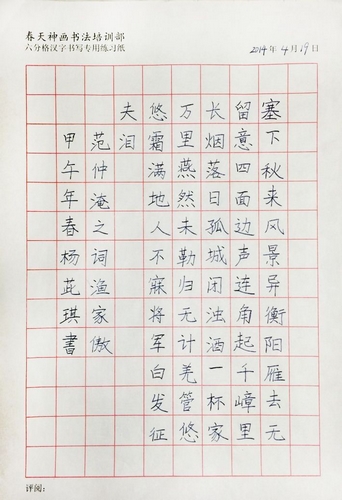 春天神画书法培训部
六分格汉字书写专用练习纸
2014年4月19日
塞下秋来风景异衡阳雁去无
留意四面边声连角起千嶂里
长烟落日孤城闭浊酒一杯家
万里燕然未勒归无计羌管悠
悠霜满地人不寐将军白发征
夫泪
范仲淹之词渔家傲
甲午年春杨茈琪書
评阅：